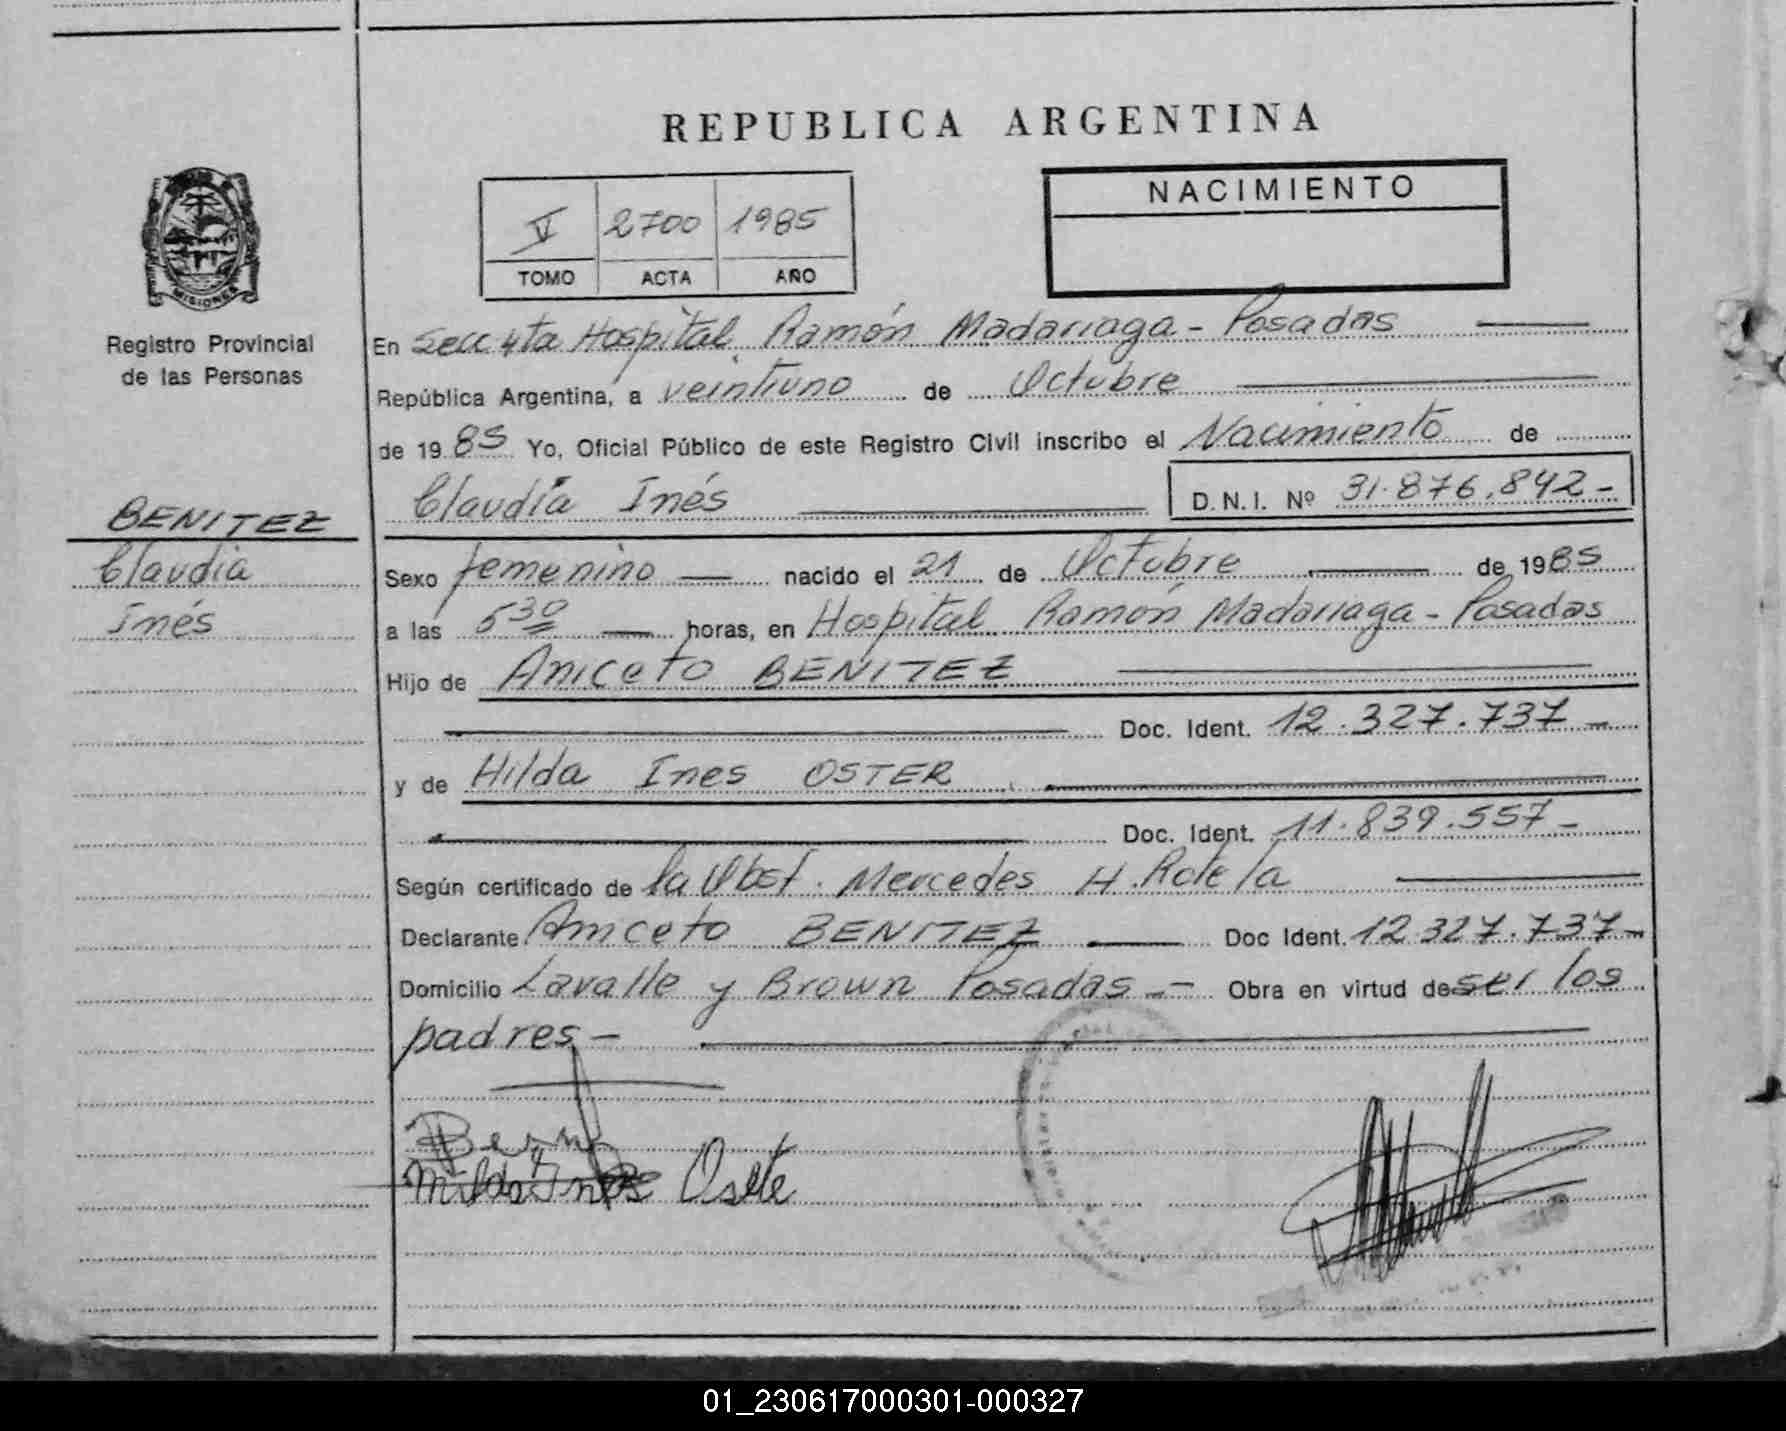 REPUBLICA ARGENTINA
V 2700 1985
TOMO ACTA AÑO
NACIMIENTO
MISIONES
Registro Provincial
de las Personas
BENITEZ
Claudia
Inés
En Secc 4ta Hospital Ramón Madariaga - Posadas
República Argentina, a veintiuno de Octubre
de 1985 Yo, Oficial Público de este Registro Civil inscribo el Nacimiento de
Claudia Inés D.N.I. Nº 31.876.842-
Sexo femenino nacido el 21 de Octubre de 1985
a las 5 30 horas, en Hospital Ramón Madariaga - Posadas
Hijo de Aniceto BENITEZ
Doc. Ident. 12.327.737-
y de Hilda Ines OSTER
Doc. Ident. 11.839.557-
Según certificado de la Obst. Mercedes H. Rotela
Declarante Aniceto BENITEZ Doc Ident. 12.327.737-
Domicilio Lavalle y Brown Posadas.- Obra en virtud de ser los
padres-
Hilda Ines Oste
01_230617000301-000327